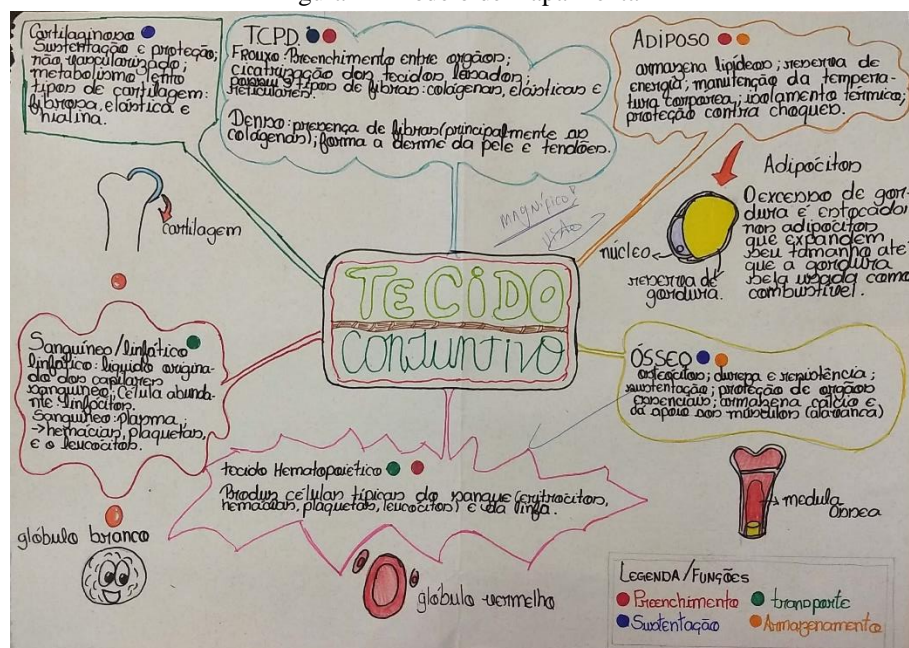 Cartilaginoso
Sustentação e proteção;
não vascularizado;
metabolismo lento
tipos de cartilagem:
fibrosa, elástica e
hialina.
cartilagem
TCPD
Frouxo: Preenchimento entre orgãos;
cicatrização dos tecidos lesados;
possuem 3 tipos de fibras: colágenas, elásticas e
reticulares.
Denso: presença de fibras (principalmente as
colágenas); forma a derme da pele e tendões.
ADIPOSO
armazena lipídeos; reserva de
energia; manutenção da tempera-
tura corporea; isolamento térmico;
proteção contra choques.
Adipócitos
O excesso de gor-
dura é estocado
nos adipócitos
que expandem
seu tamanho até
que a gordura
seja usada como
combustível.
núcleo
reserva de
gordura.
magnífico!
TECIDO
CONJUNTIVO
Sanguíneo/linfático
linfático: líquido origina-
do dos capilares
sanguíneo; Célula abunda-
nte: linfócitos.
Sanguíneo: plasma,
→hemácias, plaquetas,
e o leucócitos.
glóbulo branco
tecido Hematopoiético
Produz células típicas do sangue (eritrócitos,
hemácias, plaquetas, leucócitos) e da linfa.
glóbulo vermelho
ÓSSEO
osteócitos; dureza e resistência;
sustentação; proteção de orgãos
essenciais; armazena cálcio e
dá apoio aos músculos (alavanca)
medula
óssea
LEGENDA/FUNÇÕES
Preenchimento
transporte
Sustentação
Armazenamento